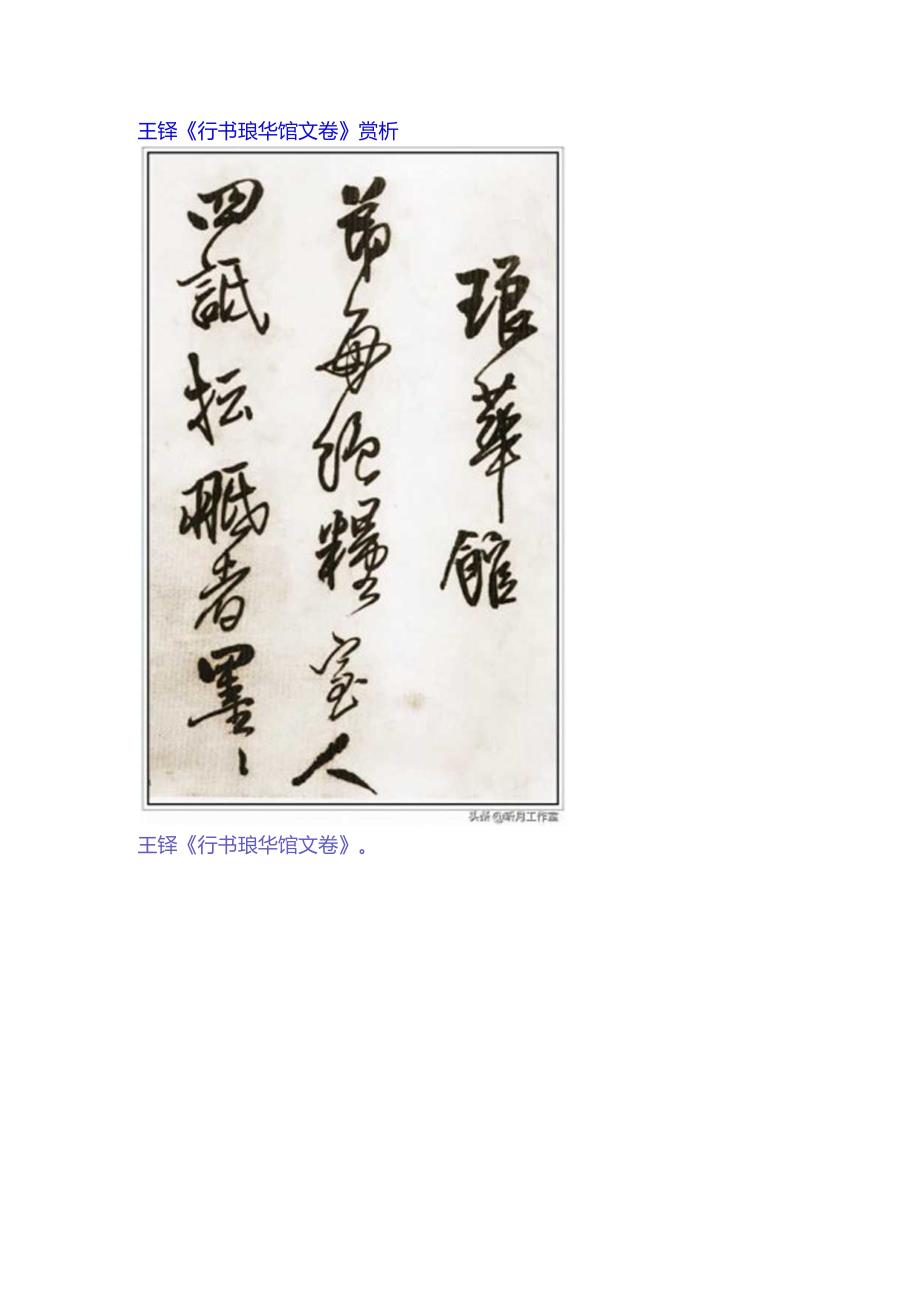 王铎《行书琅华馆文卷》赏析
琅華館
弟每絕糧室人
四詆抎眂者墨〻
头条@听月工作室
王铎《行书琅华馆文卷》。